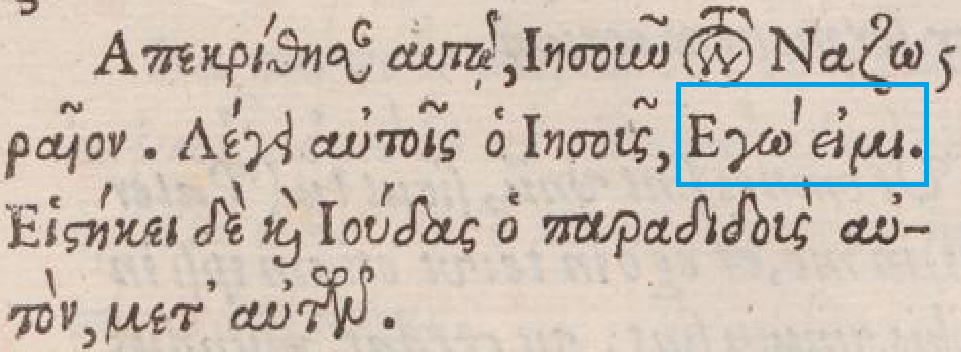 Απεκρίθησαν αυτῷ, Ιησοῦν τὸν Ναζω
ραῖον. Λέγει αὐτοῖς ὁ Ιησοῦς, Εγώ εἰμι.
Εἱστήκει δὲ καὶ Ιούδας ὁ παραδιδοὺς αὐ-
τὸν, μετ' αὐτῶν.